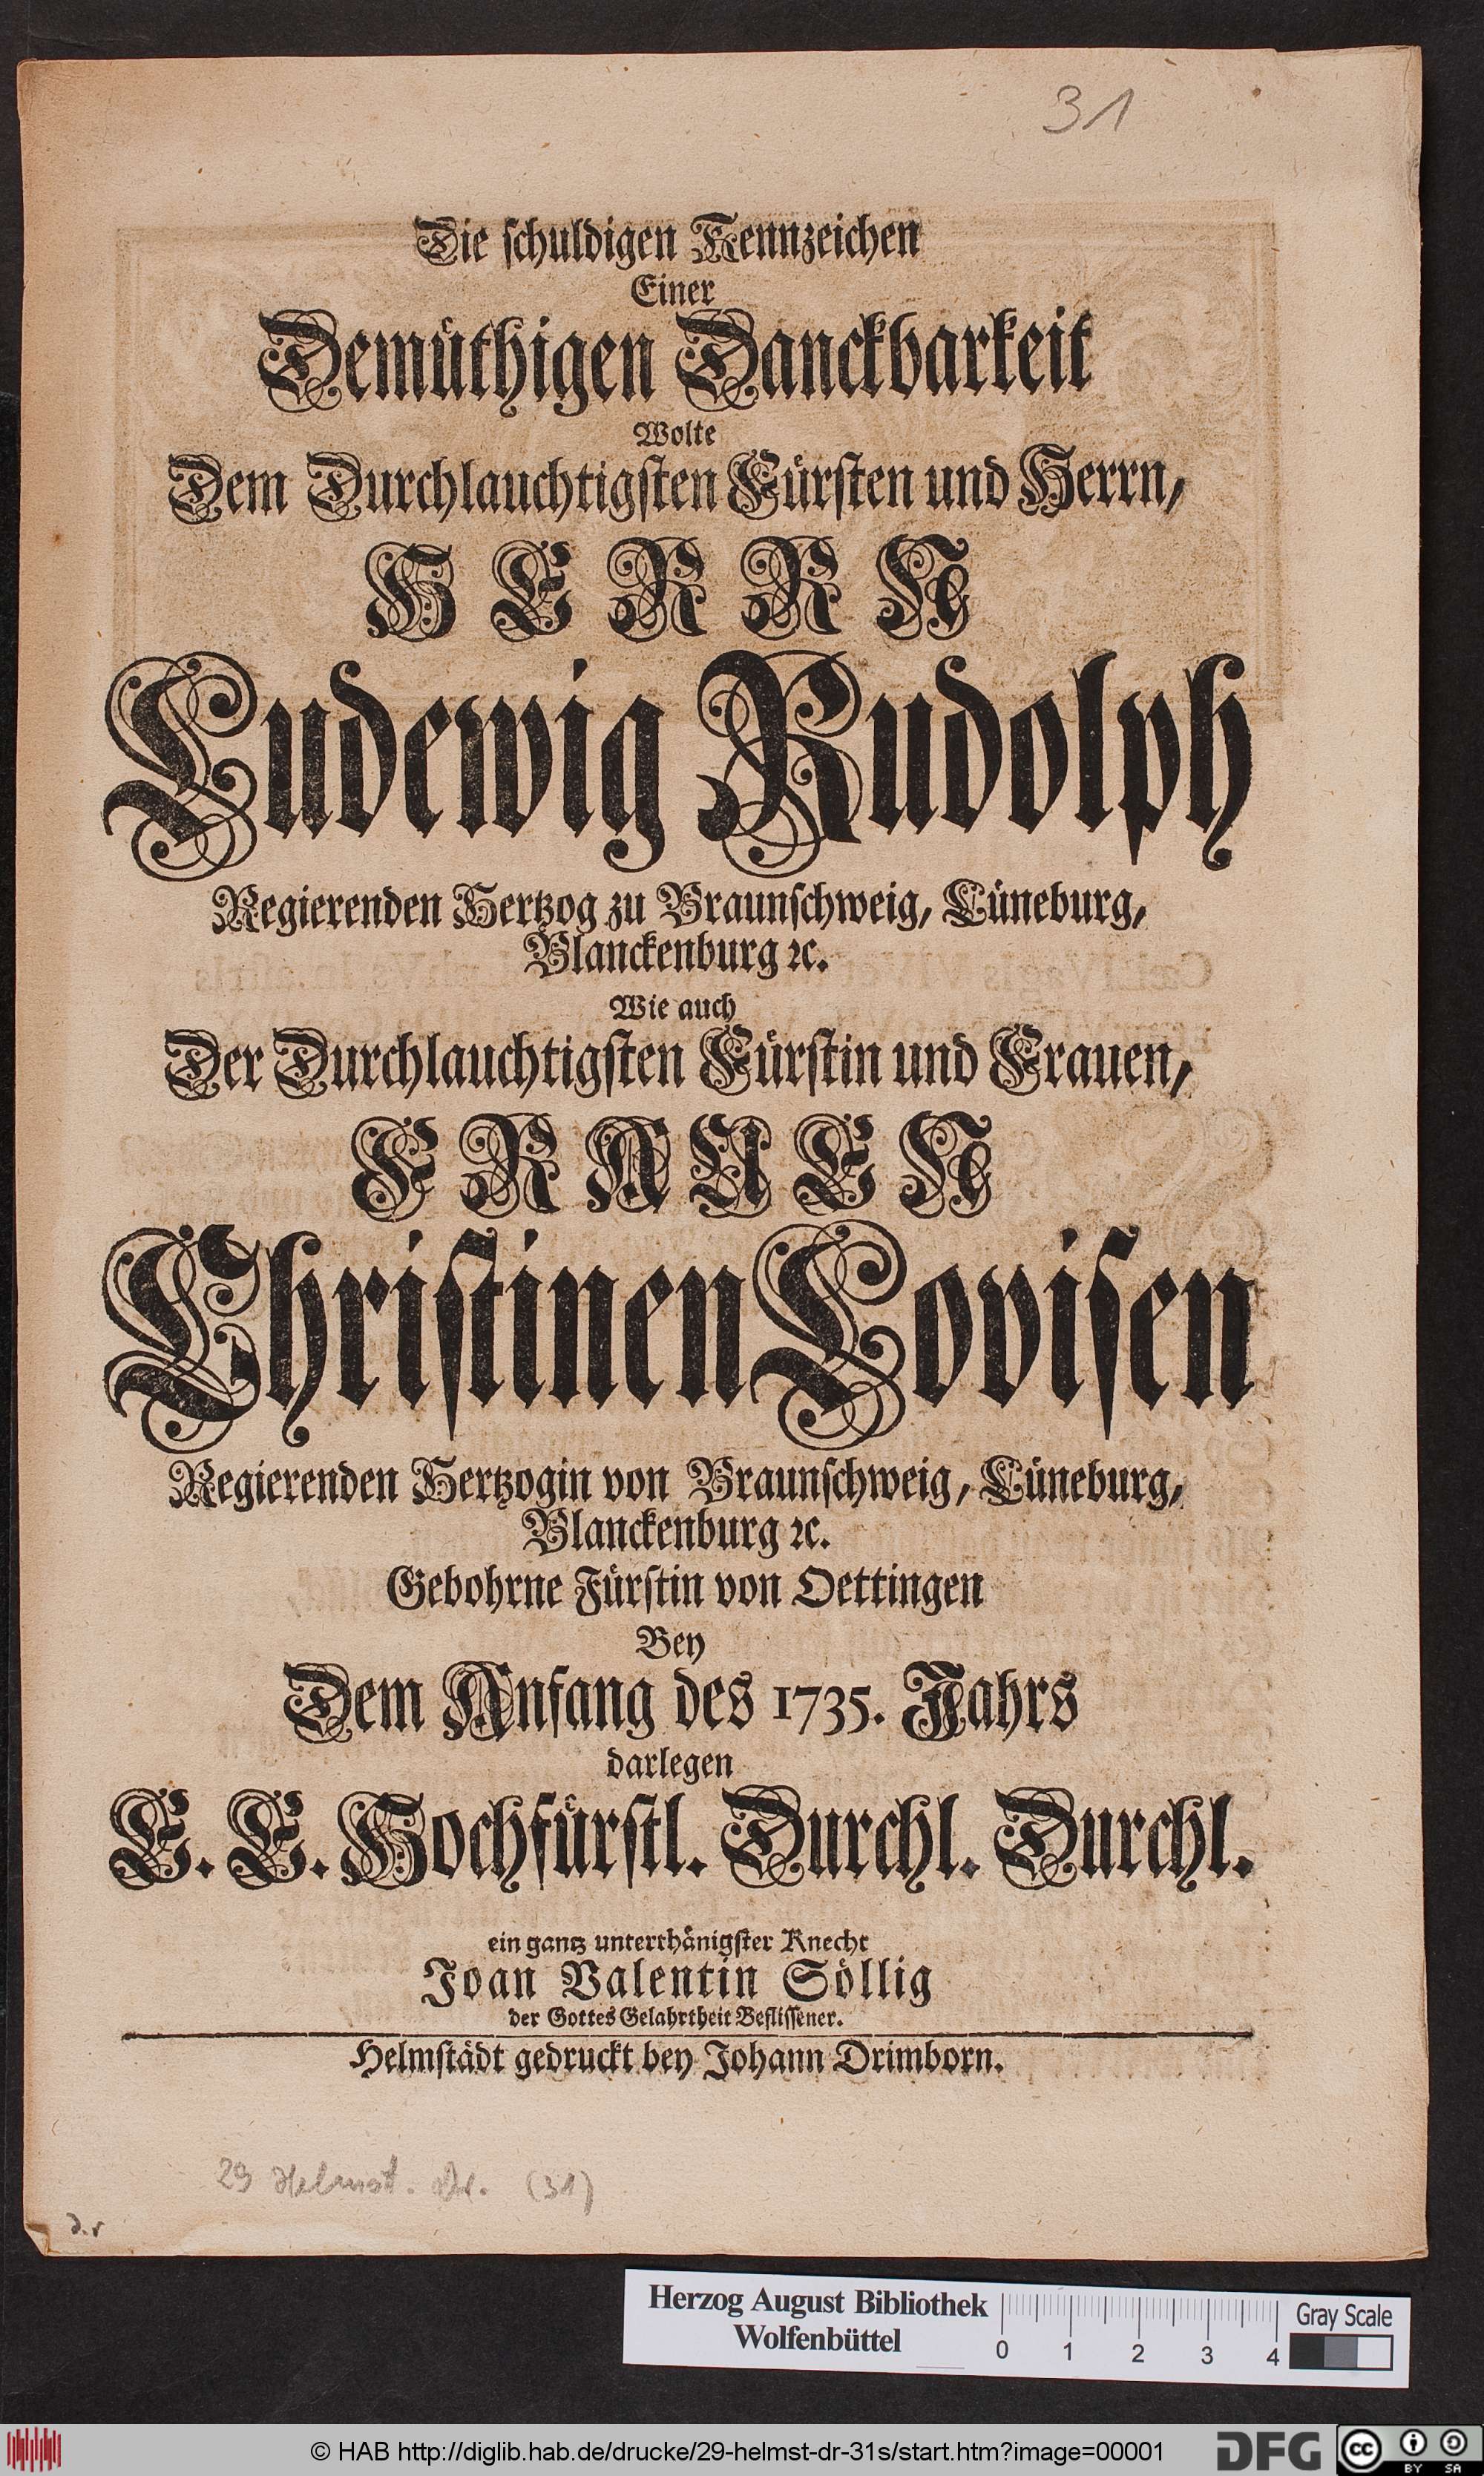 31
Die ſchuldigen Kennzeichen
Einer
Demüthigen Danckbarkeit
Wolte
Dem Durchlauchtigſten Fürſten und Herrn,
HERRN
Ludewig Rudolph
Regierenden Hertzog zu Braunſchweig, Lüneburg,
Blanckenburg ꝛc.
Wie auch
Der Durchlauchtigſten Fürſtin und Frauen,
FRAUEN
Chriſtinen Loviſen
Regierenden Hertzogin von Braunſchweig, Lüneburg,
Blanckenburg ꝛc.
Gebohrne Fürſtin von Oettingen
Bey
Dem Anfang des 1735. Jahrs
darlegen
E. E. Hochfürſtl. Durchl. Durchl.
ein gantz unterthänigſter Knecht
Joan Valentin Söllig
der Gottes Gelahrtheit Befliſſener.
Helmſtädt gedruckt bey Johann Drimborn.
29 Helmst. Dr. (31)
Herzog August Bibliothek
Wolfenbüttel
0 1 2 3 4
Gray Scale
© HAB http://diglib.hab.de/drucke/29-helmst-dr-31s/start.htm?image=00001
DFG
cc BY SA